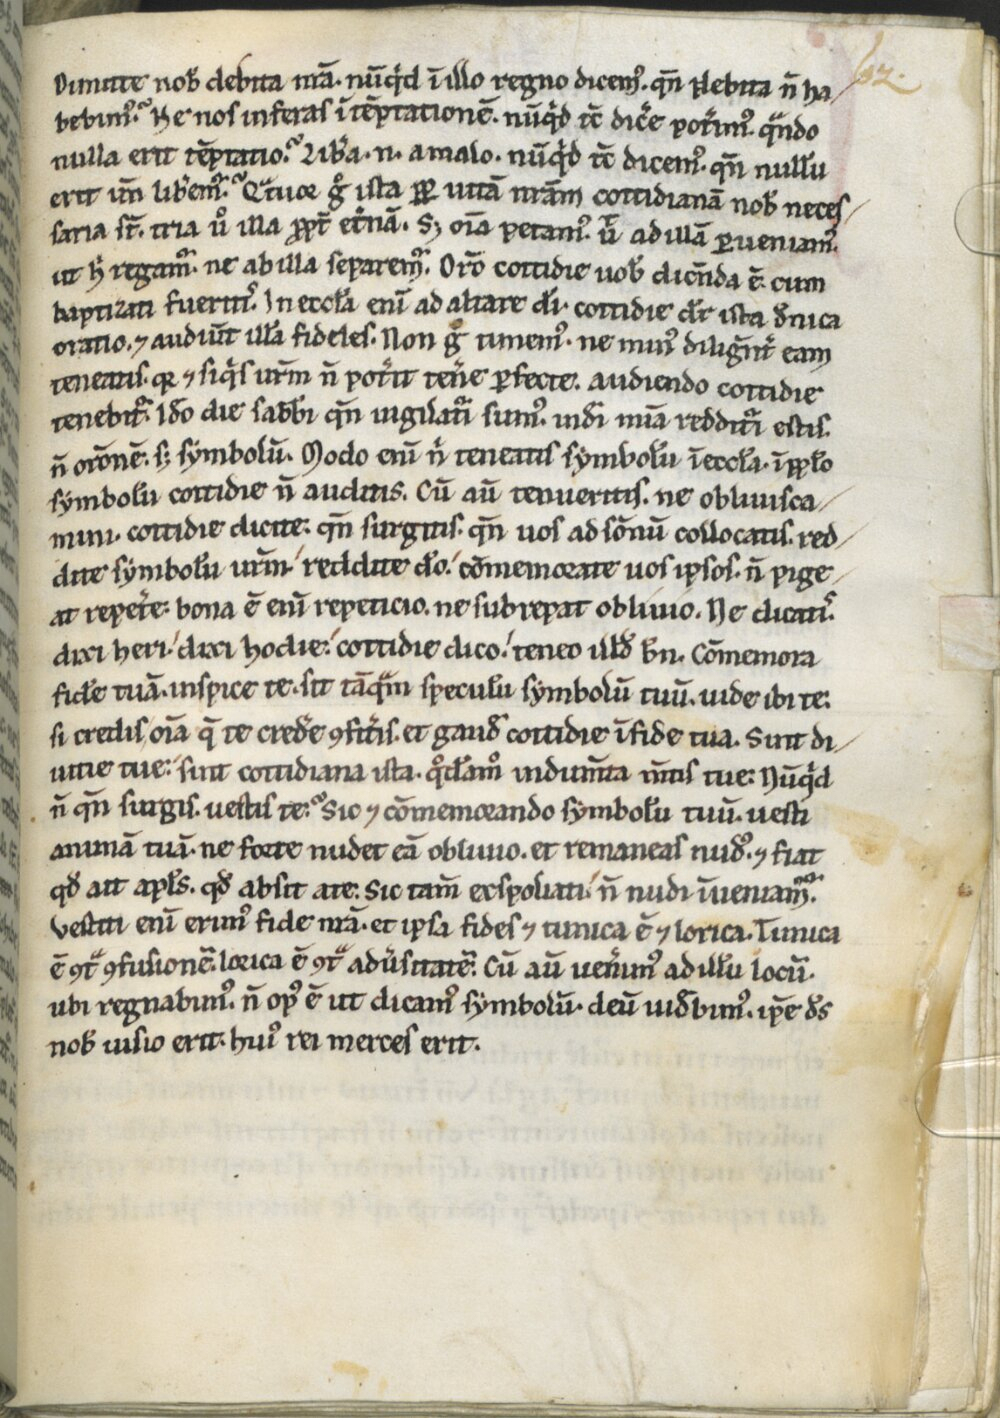 62.
Dimitte nob̄ debita nr̄a. nūq͛d ī illo regno dicemꝰ. qn̄ debita n̄ ha/
bebimꝰ? Ne nos inferas ī tēptationē. nūq͛d tc̄ dic̄e potīmꝰ. qͣndo
nulla erit tēptatio? Lib̄a. n. a malo. nūq͛d tc̄ dicemꝰ. qn̄ nullū
erit un̄ lib̄emꝰ? Qͣtuor gͦ ista ꝓp uitā nr̄am cottidianā nob̄ neces/
saria st̄. tria uͦ illa ꝓpt̄ et̄nā. Sꝫ oīa petamꝰ. ut ad illā ꝑueniamꝰ.
ut h̄ regamꝰ. ne ab illa separemꝰ. Or̄o cottidie uob̄ dicn̄da ē. cum
baptizati fueritꝭ. In eccl̄a enī ad altare dī cottidie dr̄ ista dn̄ica
oratio. ⁊ audiūt illā fideles. Non gͦ timemꝰ. ne minꝰ dilign̄t͛ eam
teneatis. qꝛ ⁊ siq͛s ur̄m n̄ pot̄it ten̄e ꝑfecte. audiendo cottidie
tenebit͛. Ido die sabb̄i qn̄ uigilat̄i sumꝰ. in dī mīa reddit̄i estis.
n̄ orōnē. sꝫ symbolū. Modo enī n̄ teneatis symbolū ī eccl̄a. ī ppl̄o
symbolū cottidie n̄ auditis. Cū aū tenueritis. ne obliuisca/
mini. cottidie dicite: qn̄ surgitis. qn̄ uos ad sōnū collocatis. red/
dite symbolū ur̄m. reddite dn̄o. cōmemorate uos ipsos. n̄ pige/
at repet̄e: bona ē enī repeticio. ne subrepat obliuio. Ne dicatꝭ.
dixi heri. dixi hodie: cottidie dico. teneo illd̄ bn̄. Cōmemora
fidē tuā. inspice te. sit tāqͣm speculū symbolū tuū. uide ibi te:
si credis oīa q̄ te cred̄e ꝯfit̄is. et gaud̄ cottidie ī fide tua. Sint di/
uitie tue: sint cottidiana ista. qͦdāmͦ indum̄ta m̄tis tue: Nūq͛d
n̄ qn̄ surgis. uestis te? Sic ⁊ cōmemorando symbolū tuū. uesti
animā tuā. ne forte nudet eā obliuio. et remaneas nudꝰ. ⁊ fiat
qd̄ ait apl̄s. qd̄ absit a te: Sic tam̄ exspoliati. n̄ nudi īueniamꝰ.
Vestiti enī erimꝰ fide nr̄a. et ipsa fides ⁊ tunica ē ⁊ lorica. Tunica
ē ꝯtͣ ꝯfusionē. lorica ē ꝯtͣ adūsitatē. Cū aū uen̄imꝰ ad illū locū.
ubi regnabimꝰ. n̄ opꝰ ē ut dicamꝰ symbolū. deū uideb̄imꝰ. ip̄e ds̄
nob̄ uisio erit. huiꝰ rei merces erit.